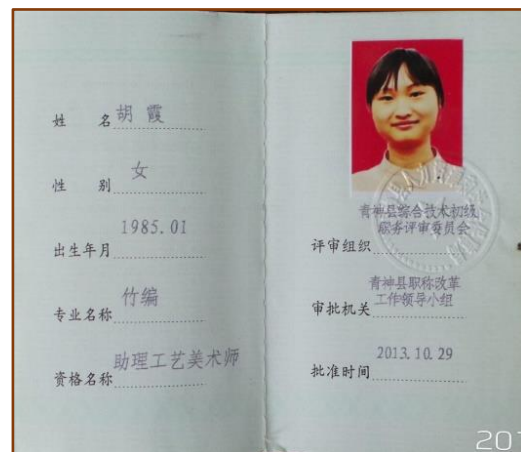 姓 名 胡 霞
性 别 女
出生年月 1985.01
专业名称 竹编
资格名称 助理工艺美术师
青神县综合技术初级
职务评审委员会
评审组织
青神县职称改革
工作领导小组
审批机关
批准时间 2013.10.29
201